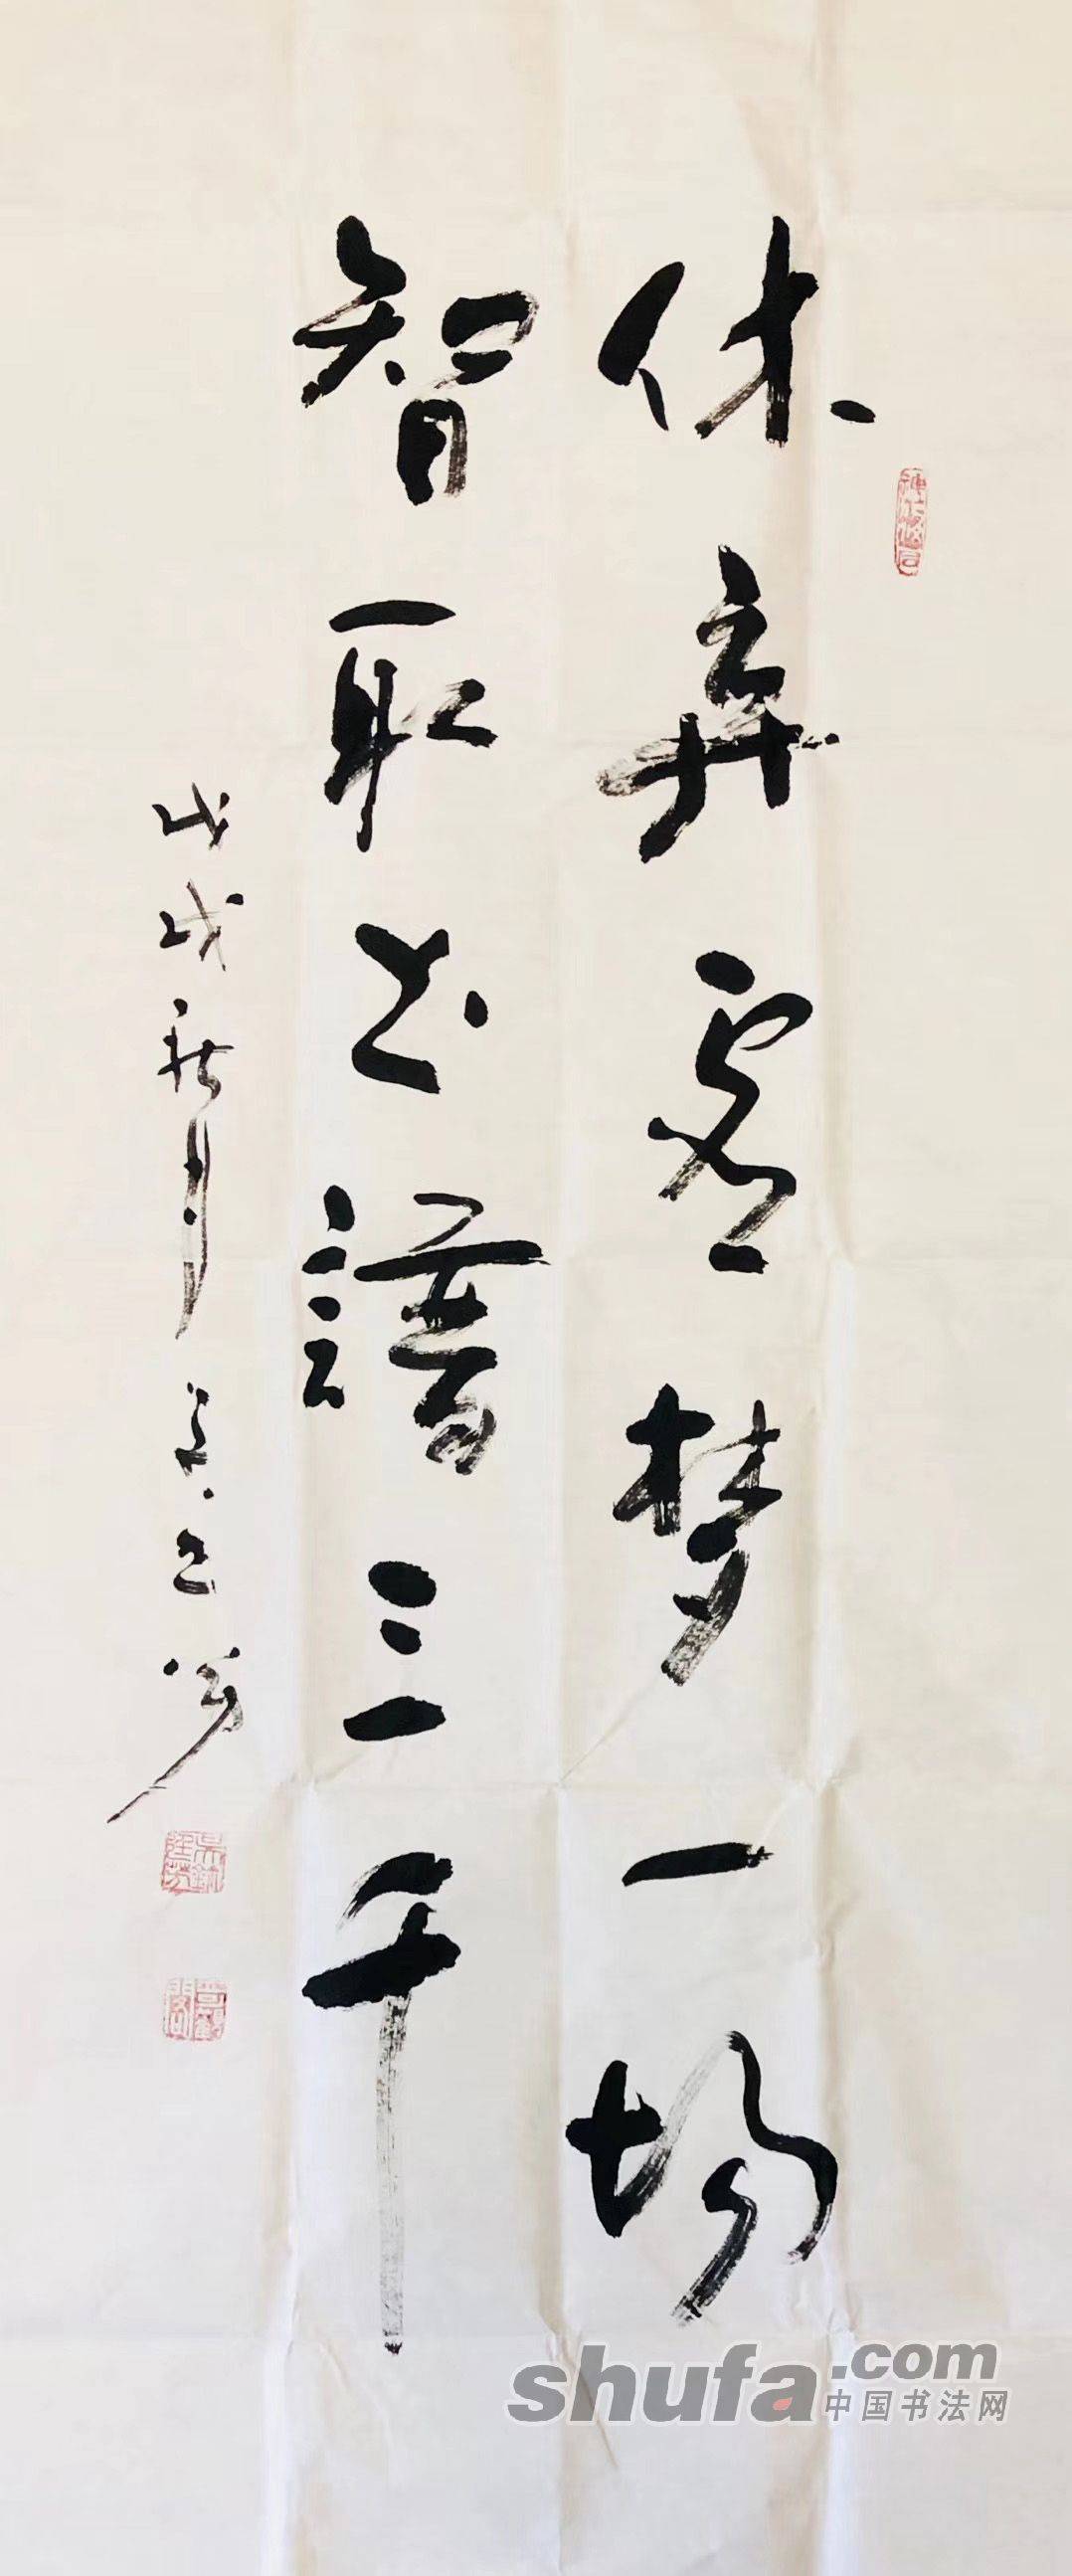 休弃虚梦一场
智取书谱三千
戊戌秋月
shufa.com
中国书法网